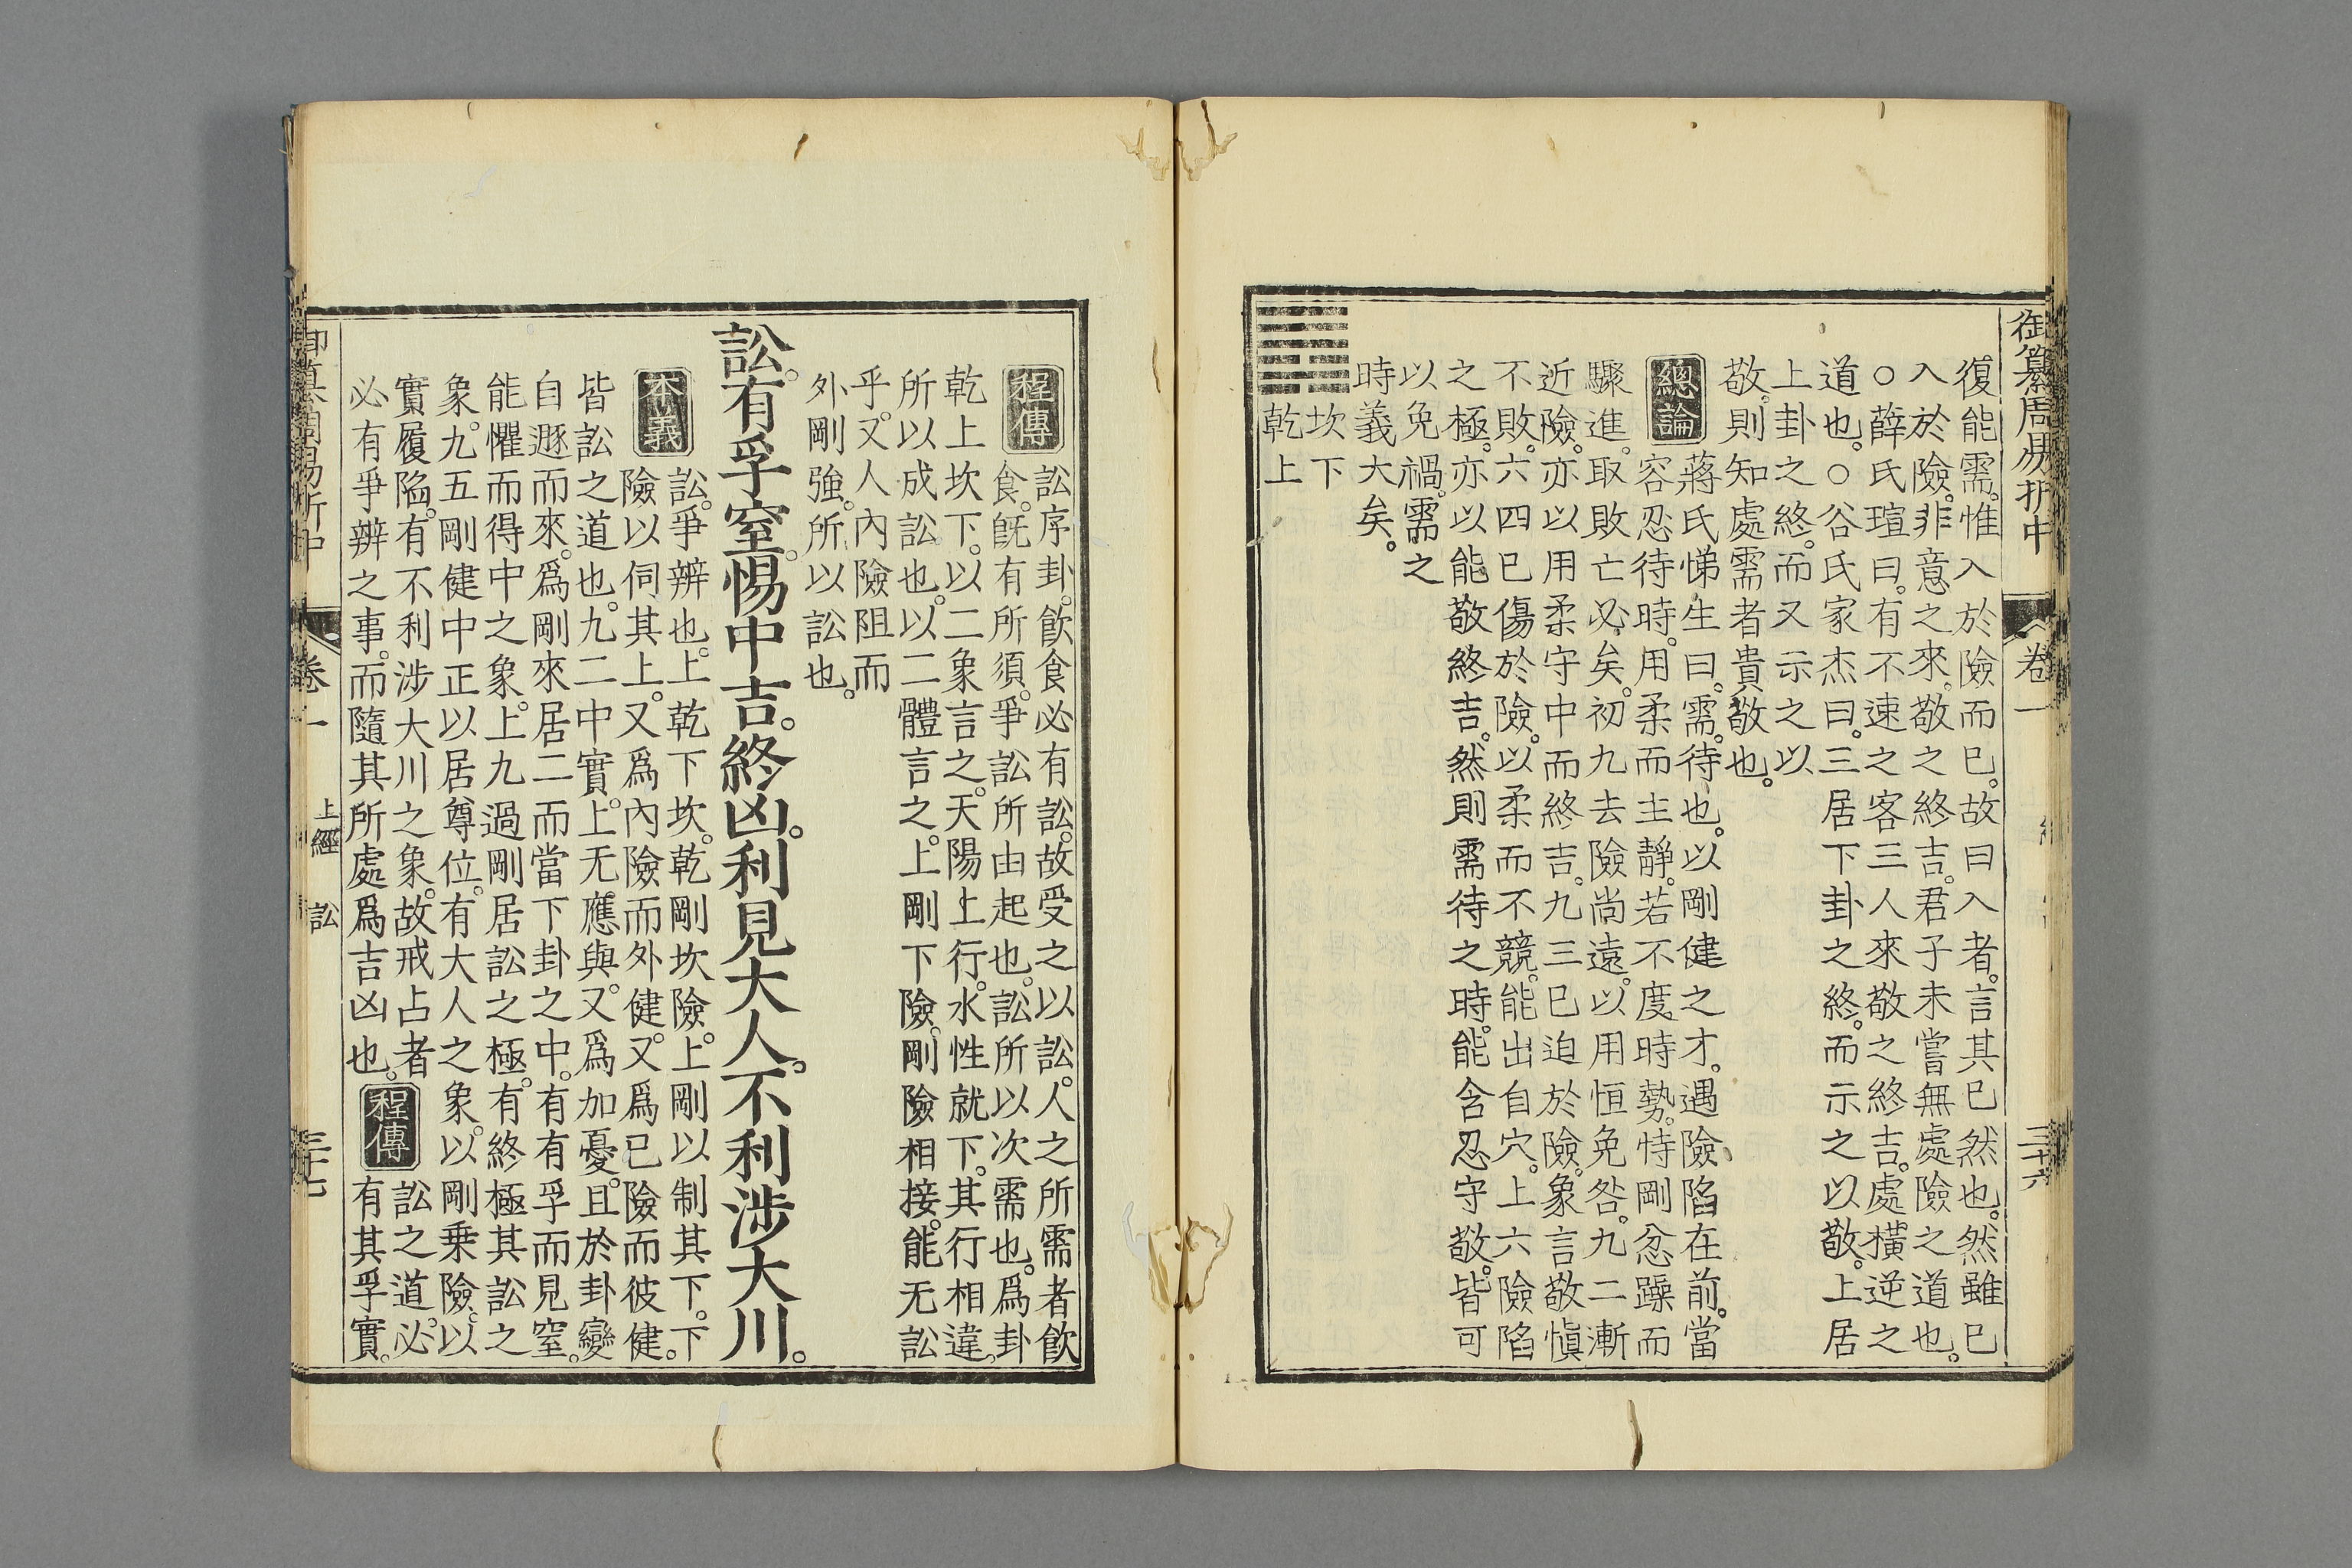 御纂周易折中
卷一
三十六
復能需。惟入於險而已。故曰入者。言其已然也。然雖已
入於險。非意之來。敬之終吉。君子未嘗無處險之道也。
○薛氏瑄曰。有不速之客三人來敬之終吉。處橫逆之
道也。○谷氏家杰曰。三居下卦之終。而示之以敬。上居
上卦之終。而又示之以
敬。則知處需者貴敬也。
總論
蔣氏悌生曰。需。待也。以剛健之才。遇險陷在前。當
容忍待時。用柔而主靜。若不度時勢。恃剛忿躁而
驟進。取敗亡必矣。初九去險尚遠。以用恒免咎。九二漸
近險。亦以用柔守中而終吉。九三已迫於險。象言敬慎
不敗。六四已傷於險。以柔而不競。能出自穴。上六險陷
之極。亦以能敬終吉。然則需待之時。能含忍守敬。皆可
以免禍。需之
時義大矣。
坎下
乾上
程傳
訟序卦。飲食必有訟。故受之以訟。人之所需者飲
食。旣有所須。爭訟所由起也。訟所以次需也。爲卦
乾上坎下。以二象言之。天陽上行。水性就下。其行相違。
所以成訟也。以二體言之。上剛下險。剛險相接。能无訟
乎。又人內險阻而
外剛強。所以訟也。
訟。有孚窒。惕中吉。終凶。利見大人。不利涉大川。
本義
訟。爭辨也。上乾下坎。乾剛坎險。上剛以制其下。下
險以伺其上。又爲內險而外健。又爲已險而彼健。
皆訟之道也。九二中實。上无應與。又爲加憂。且於卦變
自遯而來。爲剛來居二而當下卦之中。有有孚而見窒。
能懼而得中之象。上九過剛居訟之極。有終極其訟之
象。九五剛健中正以居尊位。有大人之象。以剛乗險。以
實履陷。有不利涉大川之象。故戒占者
必有爭辨之事。而隨其所處爲吉凶也。
程傳
訟之道。必
有其孚實。
御纂周易折中
卷一
上經
訟
三十七